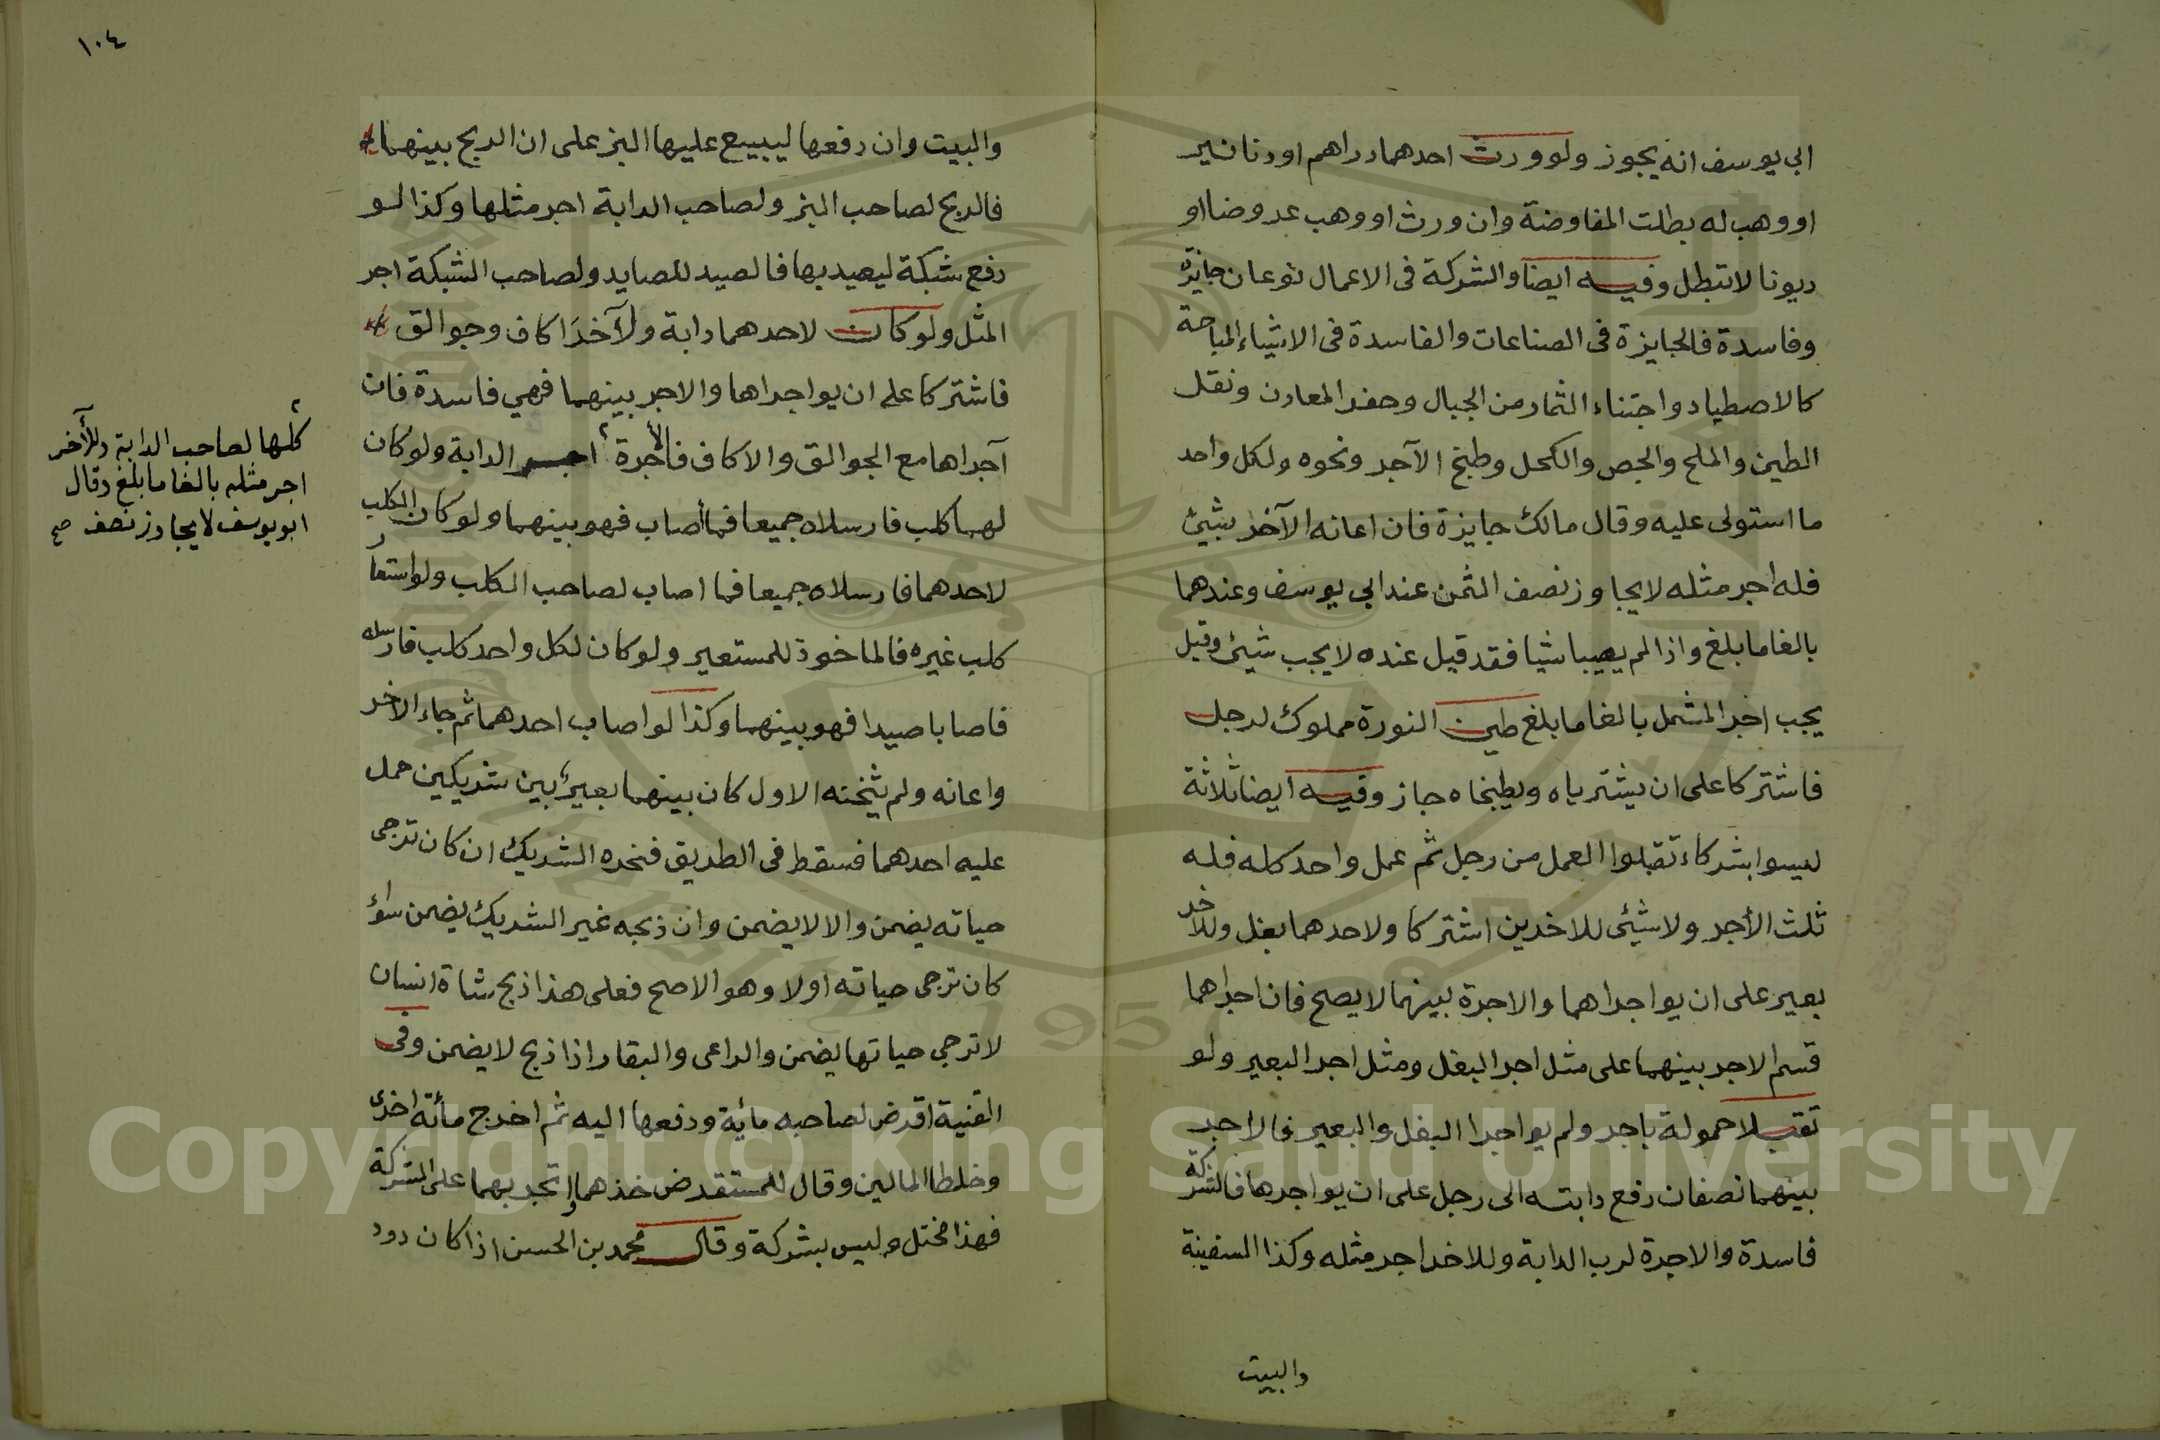 ابي يوسف انه يجوز ولو ورث احدهما دراهم او دنانير
او وهب له بطلت المفاوضة وان ورث او وهب عروضا او
ديونا لا تبطل وفيه ايضا والشركة فى الاعمال نوعان جايزة
وفاسدة فالجايزة فى الصناعات والفاسدة فى الاشياء المباحة
كالاصطياد واجتناء الثمار من الجبال وحفر المعادن ونقل
الطين والملح والجص والكحل وطبخ الآجر ونحوه ولكل واحد
ما استولى عليه وقال مالك جايزة فان اعانه الآخر بشيئ
فله اجر مثله لا يجاوز نصف الثمن عند ابي يوسف وعندهما
بالغا ما بلغ واذا لم يصيبا شيا فقد قيل عنده لا يجب شيئ وقيل
يجب اجر المثل بالغا ما بلغ طين النورة مملوك لرجل
فاشتركا على ان يشترياه ويطبخاه جاز وفيه ايضا ثلاثة
ليسوا بشركاء تقبلوا العمل من رجل ثم عمل واحد كله فله
ثلث الأجر ولا شيئ للاخرين اشتركا ولاحدهما بغل وللاخر
بعير على ان يواجراهما والاجرة بينهما لا يصح فان اجراهما
قسم الاجر بينهما على مثل اجر البغل ومثل اجر البعير ولو
تقبلا حمولة باجر ولم يواجرا البغل والبعير فالاجر
بينهما نصفان دفع دابته الى رجل على ان يواجرها فالشركة
فاسدة والاجرة لرب الدابة وللاخر اجر مثله وكذا السفينة
والبيت
١٠٤
والبيت وان دفعها ليبيع عليها البز على ان الربح بينهما
فالربح لصاحب البز ولصاحب الدابة اجر مثلها وكذا لو
دفع شبكة ليصيد بها فالصيد للصايد ولصاحب الشبكة اجر
المثل ولو كان لاحدهما دابة ولآخر اكاف وجوالق
فاشتركا على ان يواجراها والاجر بينهما فهي فاسدة فان
آجراها مع الجوالق والاكاف فالأجرة اجر الدابة ولو كان
لهما كلب فارسلاه جميعا فما أصاب فهو بينهما ولو كان الكلب
لاحدهما فارسلاه جميعا فما اصاب لصاحب الكلب ولو استعار
كلب غيره فالماخوذ للمستعير ولو كان لكل واحد كلب فارسله
فاصابا صيدا فهو بينهما وكذا لو اصاب احدهما ثم جاء الاخر
واعانه ولم يثخنه الاول كان بينهما بعير بين شريكين حمل
عليه احدهما فسقط فى الطريق فنحره الشريك ان كان ترجى
حياته يضمن والا لا يضمن وان ذبحه غير الشريك يضمن سواؤ
كان ترجى حياته اولا وهو الاصح فعلى هذا ذبح شاة انسان
لا ترجى حياتها يضمن والراعى والبقار اذا ذبح لا يضمن وفى
القنية اقرض لصاحبه مائة ودفعها اليه ثم اخرج مأئة اخرى
وخلطا المالين وقال للمستقرض خذهما واتجر بهما على الشركة
فهذا مختل وليس بشركة وقال محمد بن الحسن اذا كان دود
كلها لصاحب الدابة وللأخر
اجر مثله بالغا ما بلغ وقال
ابو يوسف لا يجاوز نصف صح
Copyright © King Saud University
1957